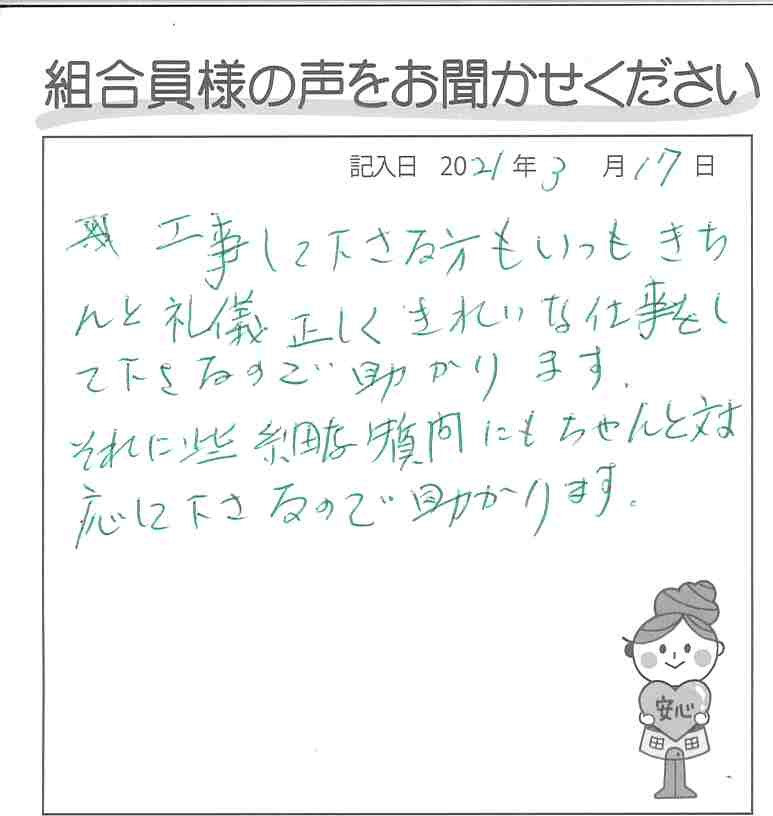 組合員様の声をお聞かせください
記入日 2021年3月17日
工事して下さる方もいつもきち
んと礼儀正しくきれいな仕事をし
て下さるので助かります.
それに些細な質問にもちゃんと対
応して下さるので助かります。
安心